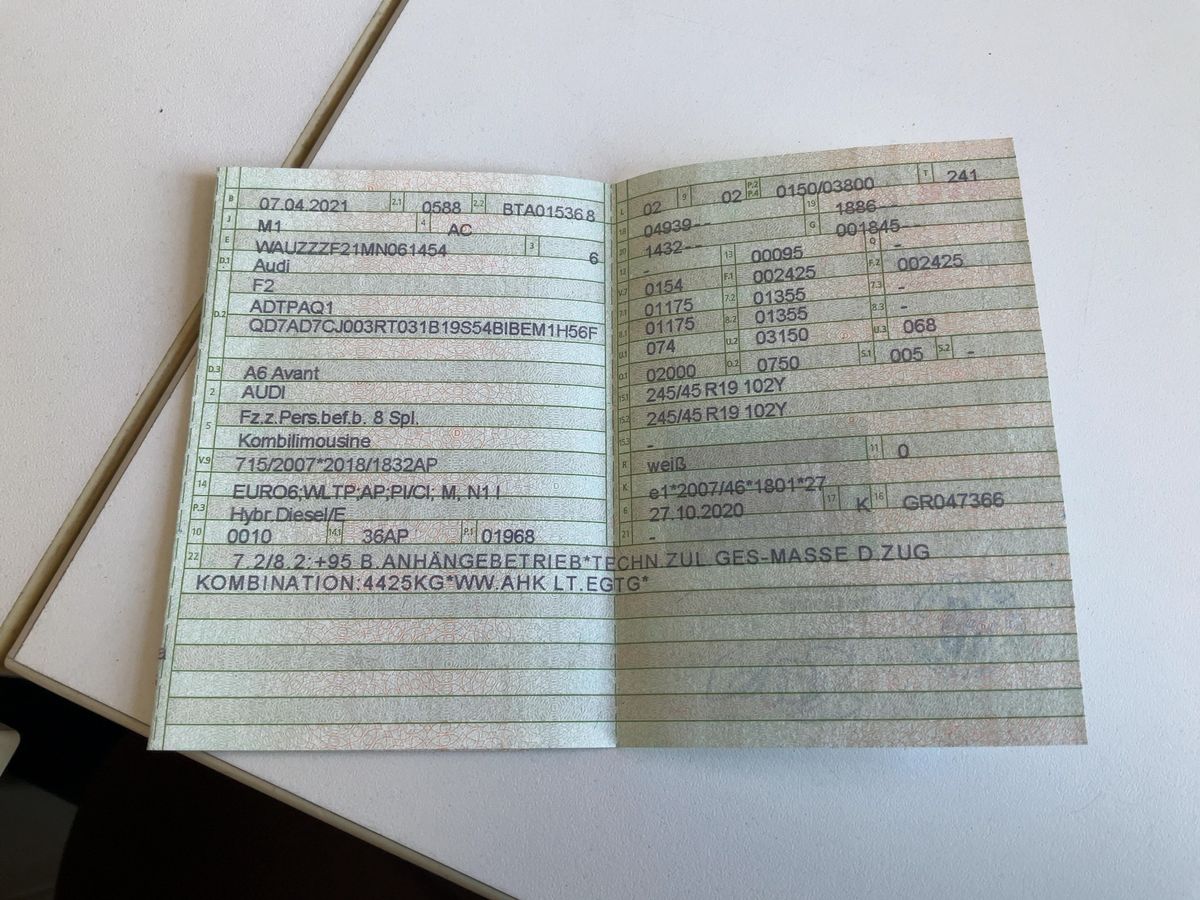 B 07.04.2021 2.1 0588 2.2 BTA015368
J M1 4 AC
E WAUZZZF21MN061454 3 6
D.1 Audi
F2
D.2 ADTPAQ1
QD7AD7CJ003RT031B19S54BIBEM1H56F
D.3 A6 Avant
2 AUDI
5 Fz.z.Pers.bef.b. 8 Spl.
Kombilimousine
V.9 715/2007*2018/1832AP
14 EURO6;WLTP;AP;PI/CI; M, N1 I
P.3 Hybr.Diesel/E
10 0010 14.1 36AP P.1 01968
L 02 9 02 P.2 P.4 0150/03800 T 241
18 04939-- 19 1886--
20 1432-- G 001845--
12 - 13 00095 Q -
V.7 0154 F.1 002425 F.2 002425
7.1 01175 7.2 01355 7.3 -
8.1 01175 8.2 01355 8.3 -
U.1 074 U.2 03150 U.3 068
O.1 02000 O.2 0750 S.1 005 S.2 -
15.1 245/45 R19 102Y
15.2 245/45 R19 102Y
15.3 -
R weiß 11 0
K e1*2007/46*1801*27
6 27.10.2020 17 K 16 GR047366
21 -
22 7.2/8.2:+95 B.ANHÄNGEBETRIEB*TECHN.ZUL GES-MASSE D.ZUG
KOMBINATION:4425KG*WW.AHK LT.EGTG*